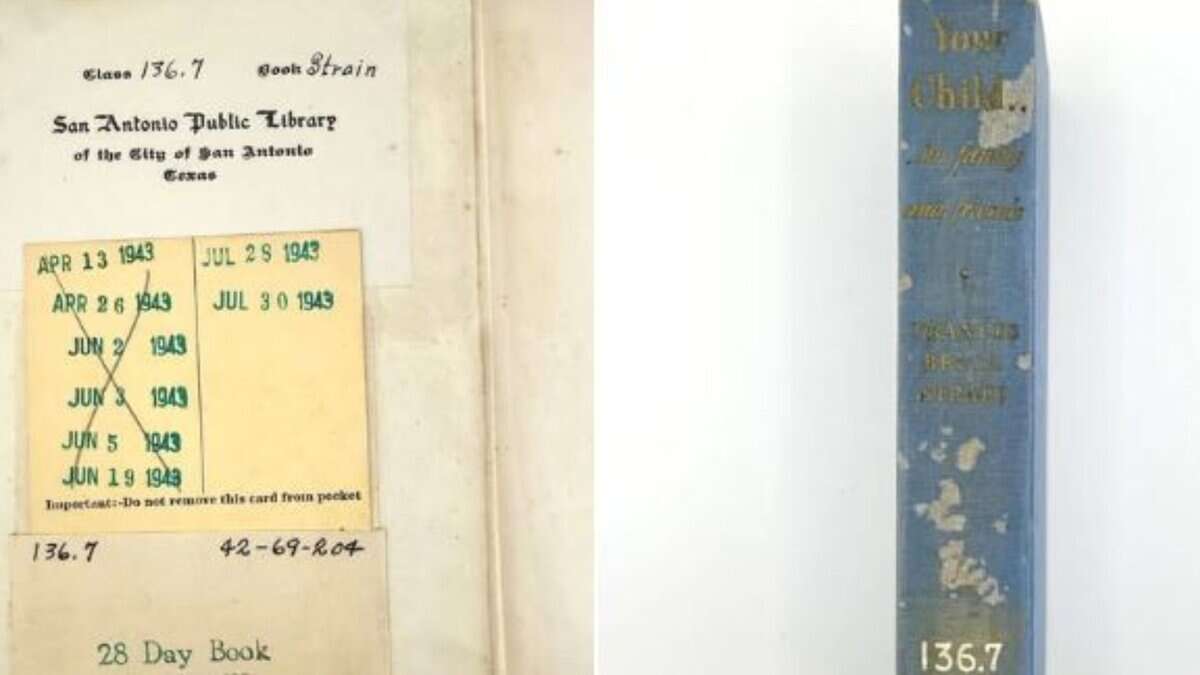 Class 136.7 Book Strain
San Antonio Public Library
of the City of San Antonio
Texas
APR 13 1943
APR 26 1943
JUN 2 1943
JUN 3 1943
JUN 5 1943
JUN 19 1943
JUL 28 1943
JUL 30 1943
Important:-Do not remove this card from pocket
136.7 42-69-204
28 Day Book
Your
Child..
his family
and friends
FRANCES
BRUCE
STRAIN
136.7